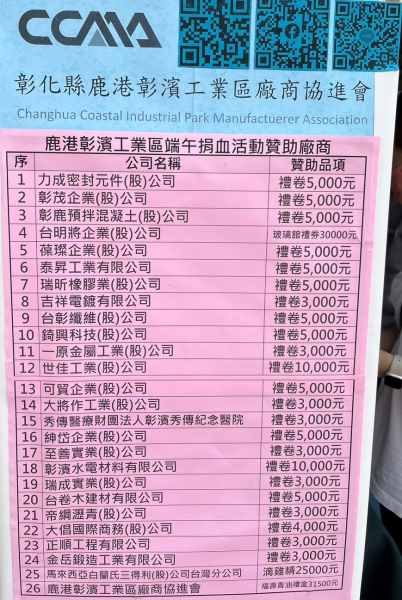 CCMA
彰化縣鹿港彰濱工業區廠商協進會
Changhua Coastal Industrial Park Manufactuerer Association
鹿港彰濱工業區端午捐血活動贊助廠商
序 公司名稱 贊助品項
1 力成密封元件(股)公司 禮卷5,000元
2 彰茂企業(股)公司 禮卷5,000元
3 彰鹿預拌混凝土(股)公司 禮卷5,000元
4 台明將企業(股)公司 玻璃館禮券30000元
5 葆璨企業(股)公司 禮卷5,000元
6 泰昇工業有限公司 禮卷5,000元
7 瑞昕橡膠業(股)公司 禮卷5,000元
8 吉祥電鍍有限公司 禮卷3,000元
9 台彰纖維(股)公司 禮卷5,000元
10 錡興科技(股)公司 禮卷5,000元
11 一原金屬工業(股)公司 禮卷3,000元
12 世佳工業(股)公司 禮卷10,000元
13 可貿企業(股)公司 禮卷5,000元
14 大將作工業(股)公司 禮卷3,000元
15 秀傳醫療財團法人彰濱秀傳紀念醫院 禮卷3,000元
16 紳岱企業(股)公司 禮卷5,000元
17 至善實業(股)公司 禮卷3,000元
18 彰濱水電材料有限公司 禮卷10,000元
19 瑞成實業(股)公司 禮卷3,000元
20 台卷木建材有限公司 禮卷5,000元
21 帝綱瀝青(股)公司 禮卷3,000元
22 大倡國際商務(股)公司 禮卷4,000元
23 正順工程有限公司 禮卷3,000元
24 金岳鍛造工業有限公司 禮卷3,000元
25 馬來西亞白蘭氏三得利(股)公司台灣分公司 滴雞精25000元
26 鹿港彰濱工業區廠商協進會 福壽香油禮盒31500元